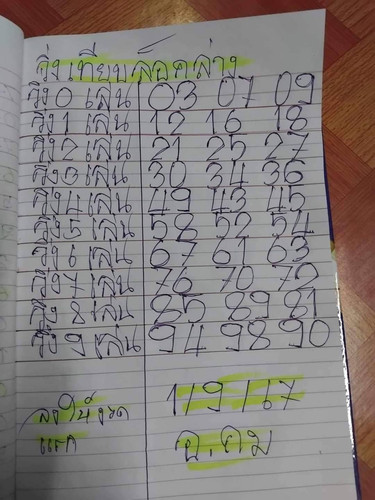 วิ่งเทียบล็อคล่าง
วิ่ง 0 เล่น 03 07 09
วิ่ง 1 เล่น 12 16 18
วิ่ง 2 เล่น 21 25 27
วิ่ง 3 เล่น 30 34 36
วิ่ง 4 เล่น 49 43 45
วิ่ง 5 เล่น 58 52 54
วิ่ง 6 เล่น 67 61 63
วิ่ง 7 เล่น 76 70 72
วิ่ง 8 เล่น 85 89 81
วิ่ง 9 เล่น 94 98 90
ลงให้งวด 1/9/67
แรก อ.คม